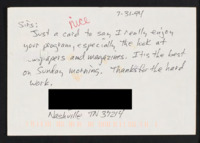 nice
7-31-91
Sirs:
Just a card to say I really enjoy
your program, especially the look at
newspapers and magazines. It is the best
on Sunday morning. Thanks for the hard
work.
Nashville TN 37214